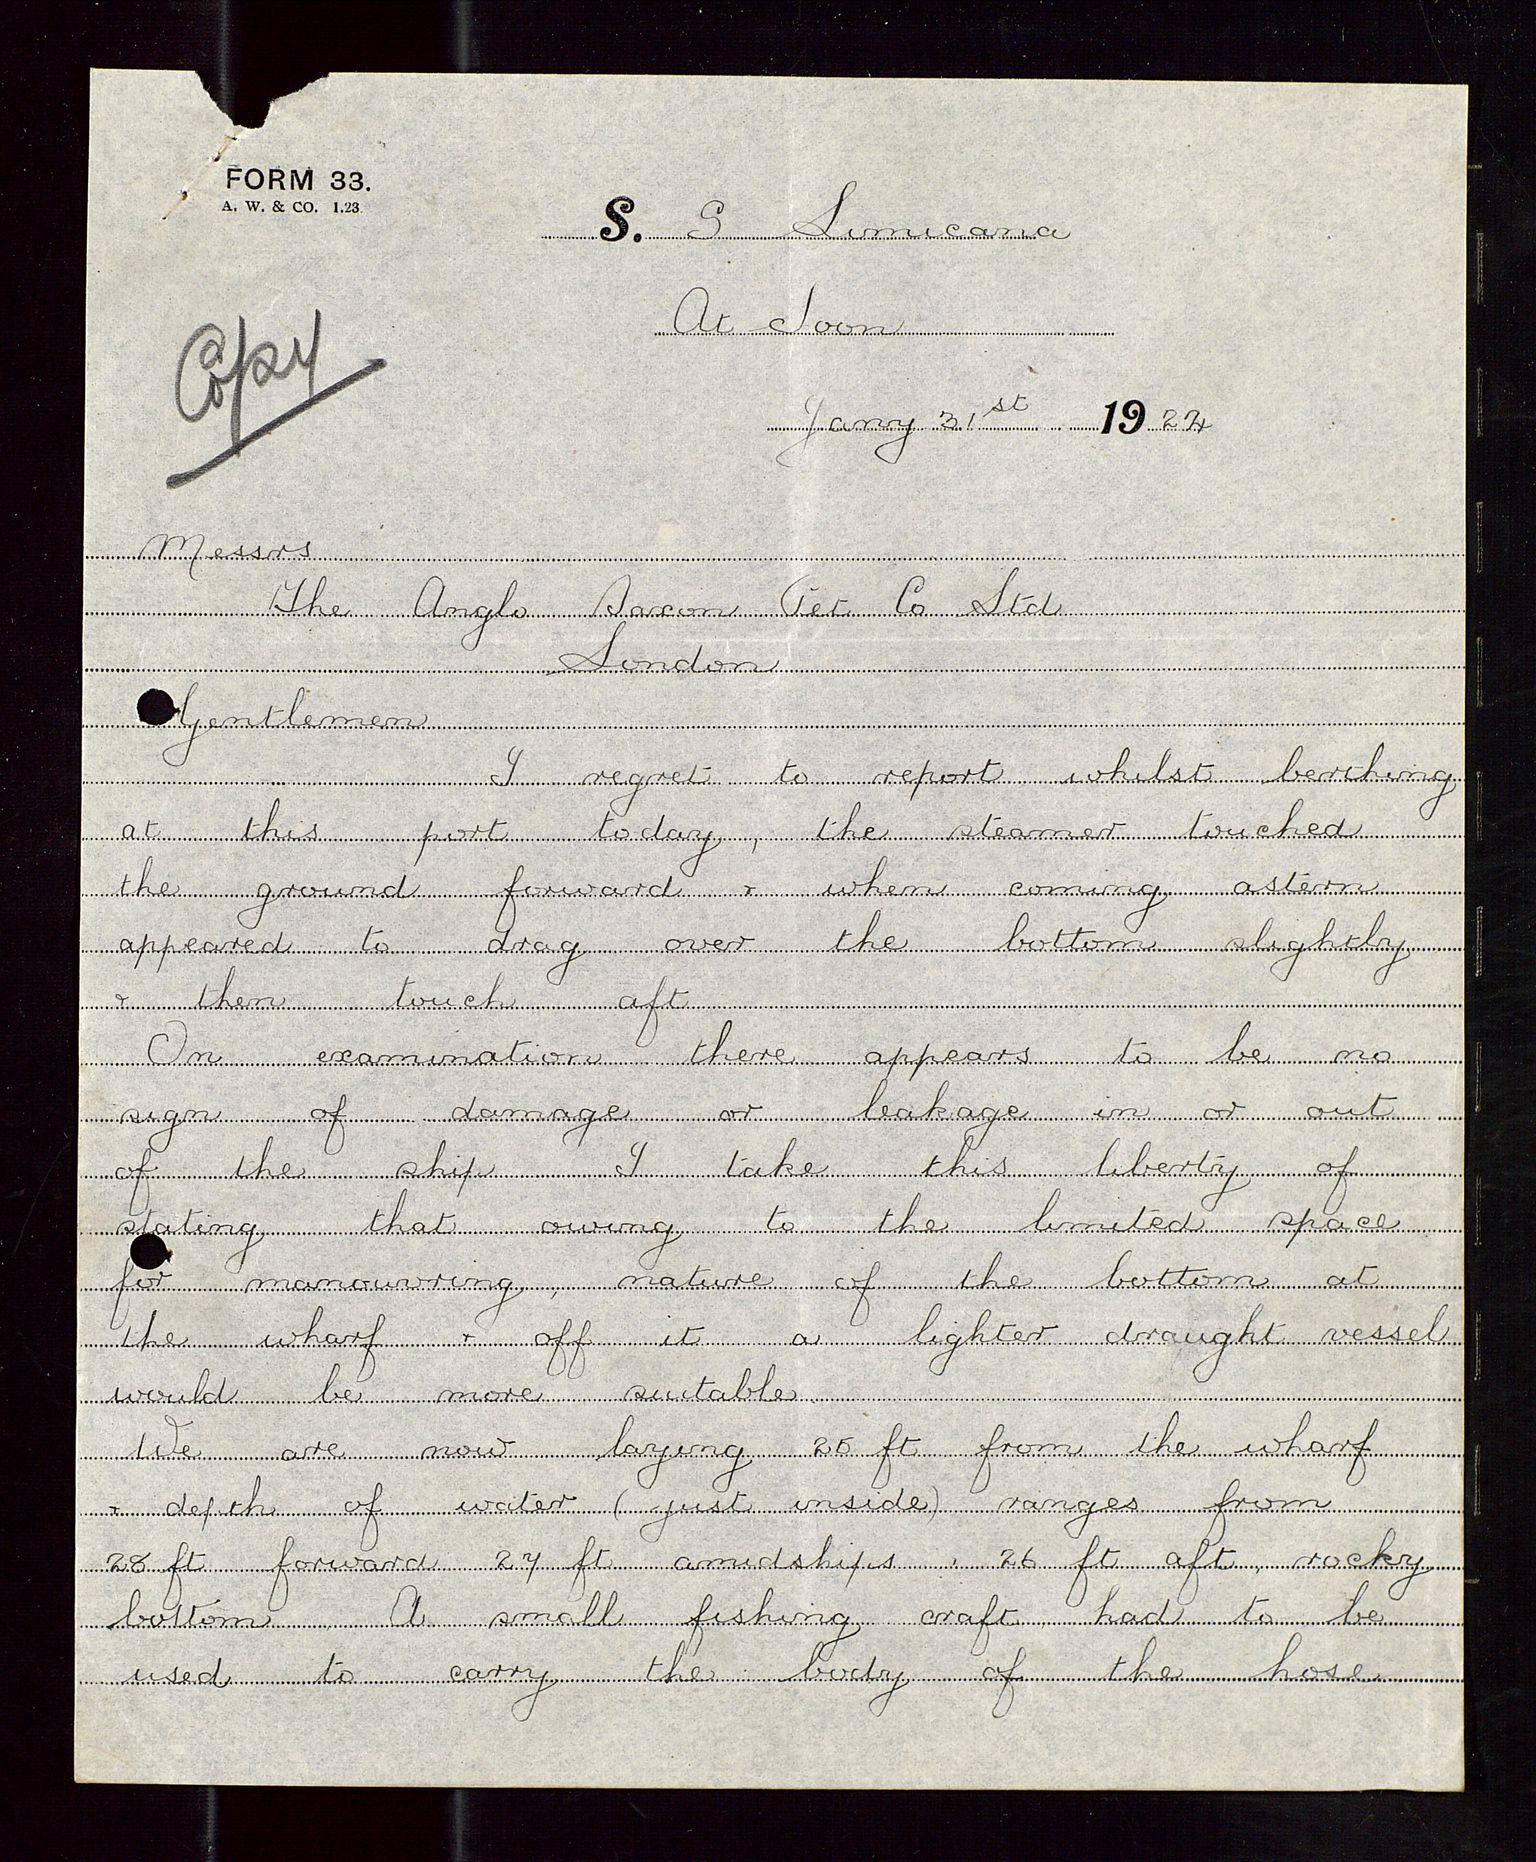 FORM 33.
A. W. & CO. 1.23
S. S Limicana
At Soon
Jany 31st 1924
Copy
Messrs
The Anglo Saxon Pet Co Ltd
London
Gentlemen
I regret to report whilst berthing
at this port today, the steamer touched
the ground forward & when coming astern
appeared to drag over the bottom slightly
& then touch aft
On examination there appears to be no
sign of damage or leakage in or out
of the ship I take this liberty of
stating that owing to the limited space
for manouvring, nature of the bottom at
the wharf & off it a lighter draught vessel
would be more suitable
We are now laying 25 ft from the wharf
& depth of water (just inside) ranges from
28 ft forward 27 ft amidships, 26 ft aft, rocky
bottom. A small fishing craft had to be
used to carry the body of the hose